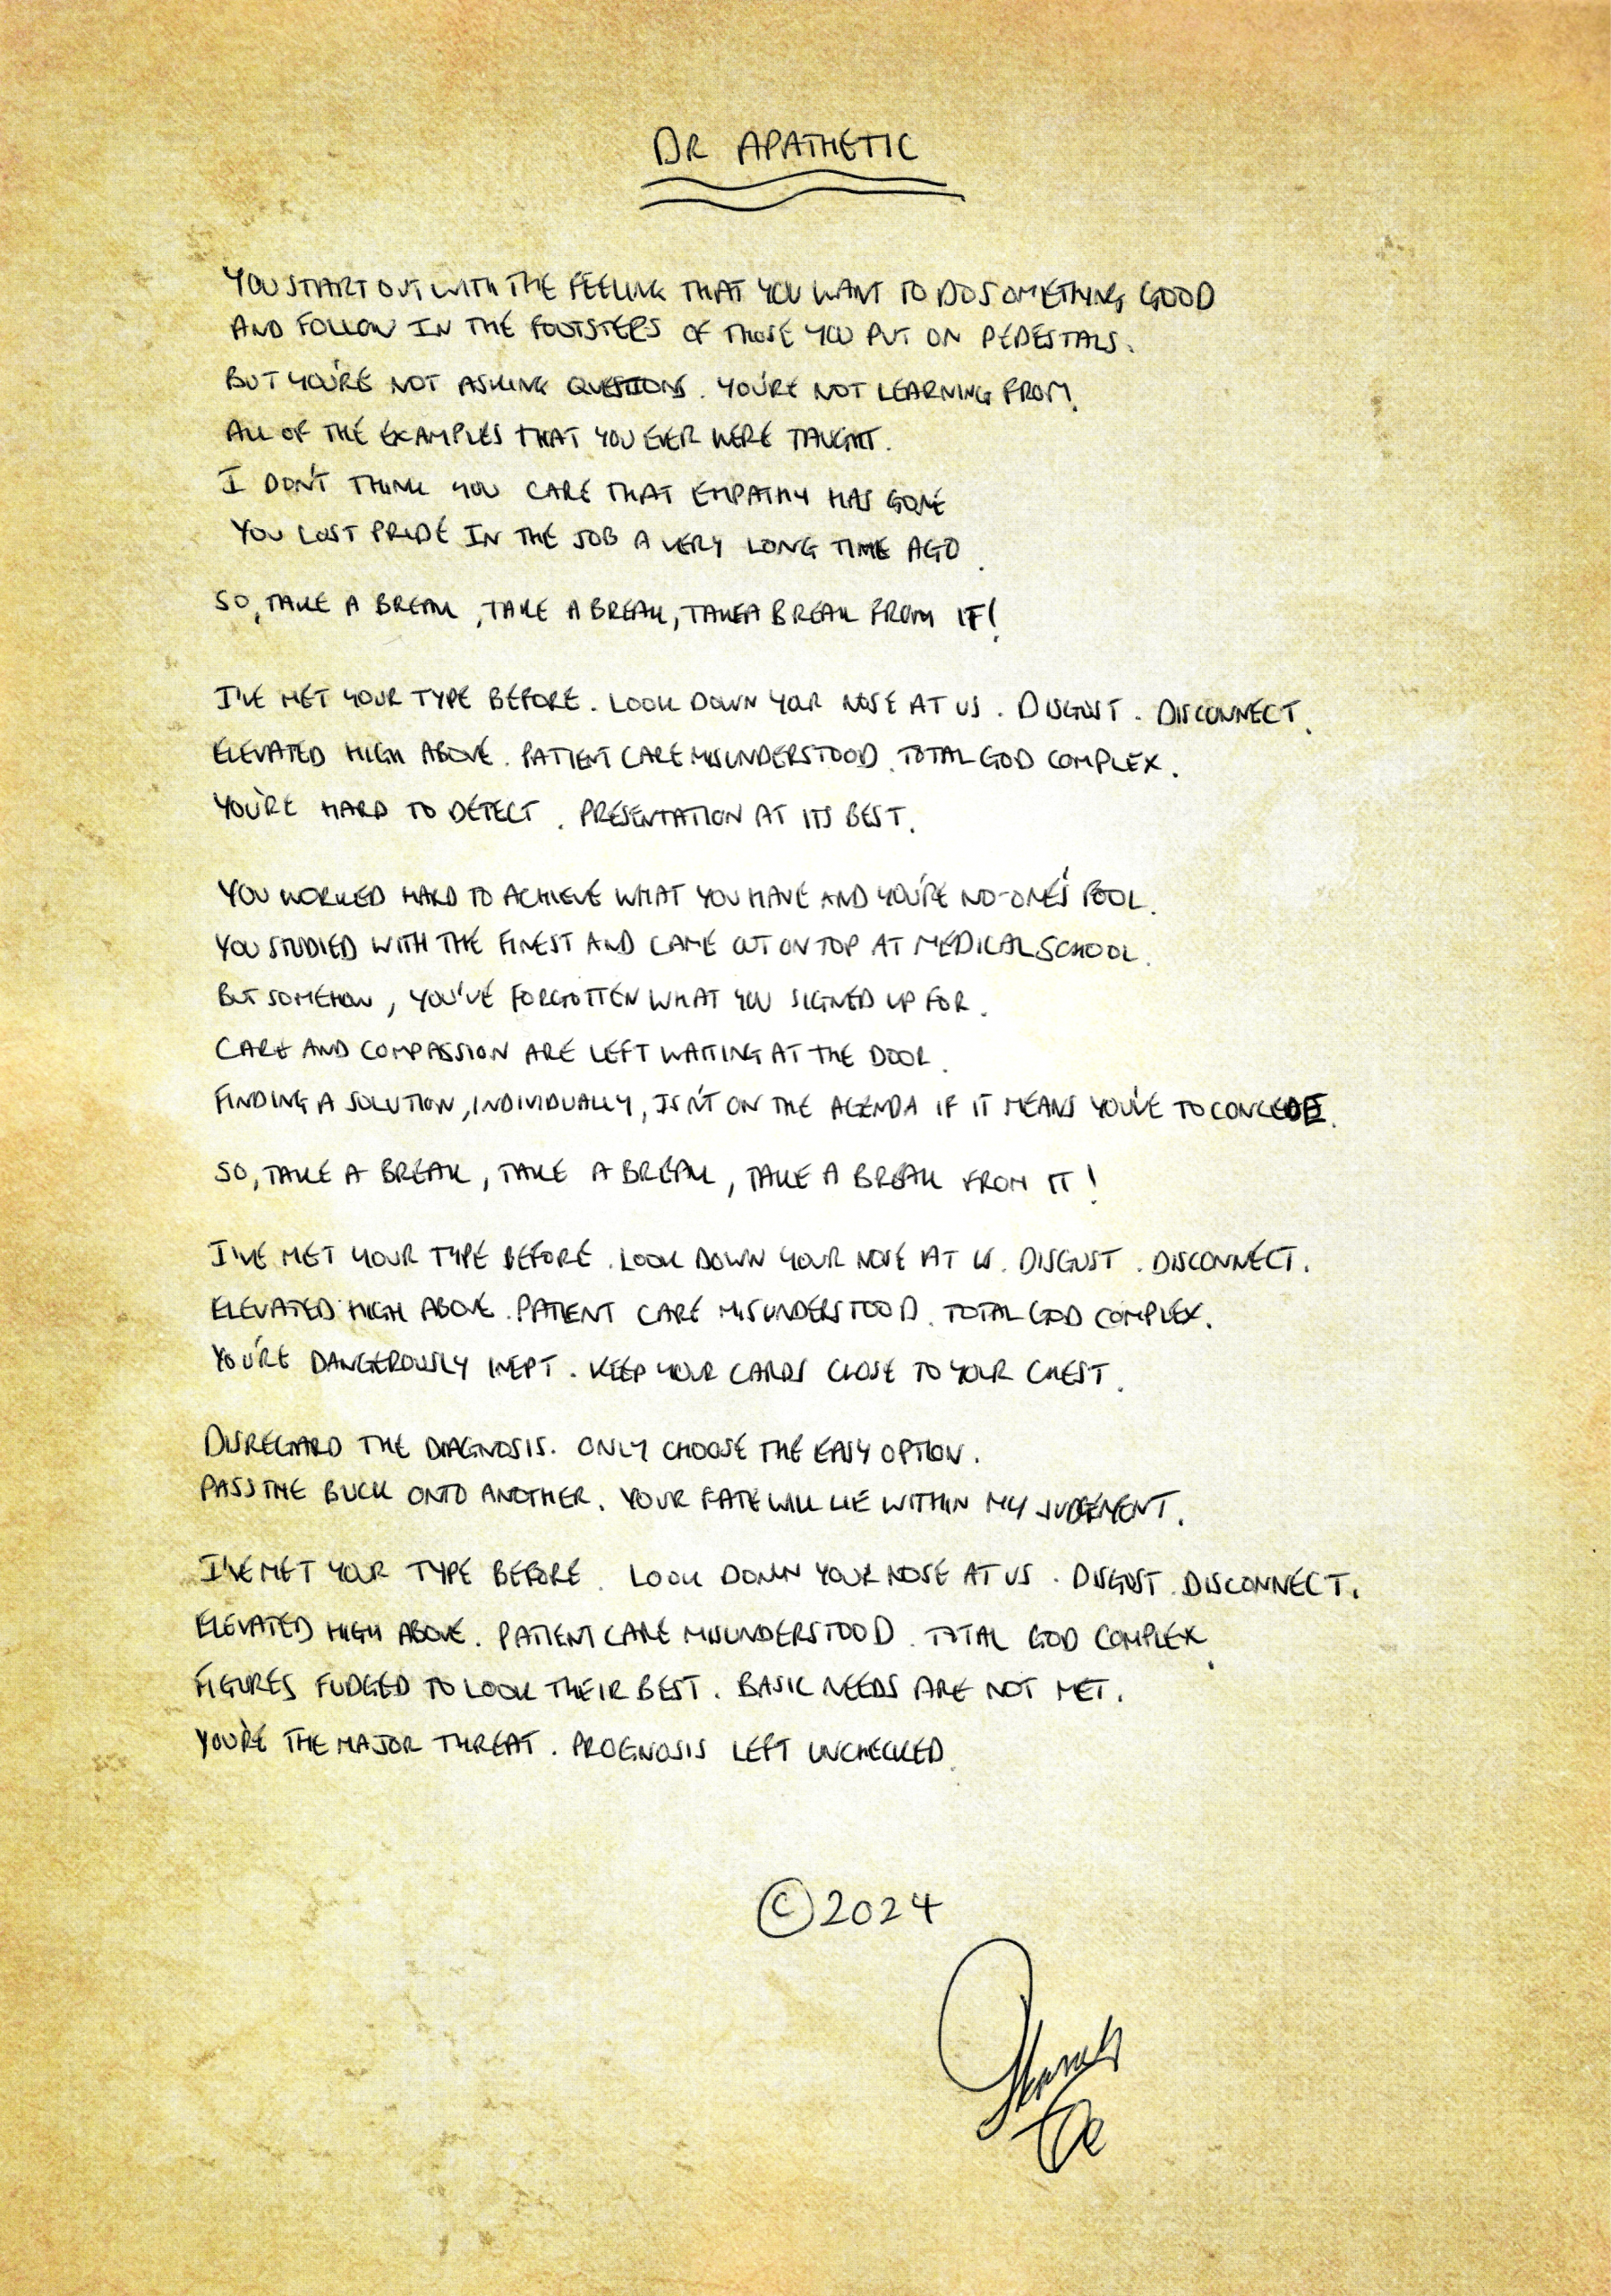 DR APATHETIC
YOU START OUT WITH THE FEELING THAT YOU WANT TO DO SOMETHING GOOD
AND FOLLOW IN THE FOOTSTEPS OF THOSE YOU PUT ON PEDESTALS.
BUT YOU'RE NOT ASKING QUESTIONS. YOU'RE NOT LEARNING FROM
ALL OF THE EXAMPLES THAT YOU EVER WERE TAUGHT.
I DON'T THINK YOU CARE THAT EMPATHY HAS GONE
YOU LOST PRIDE IN THE JOB A VERY LONG TIME AGO.
SO, TAKE A BREAK, TAKE A BREAK, TAKE A BREAK FROM IT!
I'VE MET YOUR TYPE BEFORE. LOOK DOWN YOUR NOSE AT US. DISGUST. DISCONNECT.
ELEVATED HIGH ABOVE. PATIENT CARE MISUNDERSTOOD. TOTAL GOD COMPLEX.
YOU'RE HARD TO DETECT. PRESENTATION AT ITS BEST.
YOU WORKED HARD TO ACHIEVE WHAT YOU HAVE AND YOU'RE NO-ONE'S FOOL.
YOU STUDIED WITH THE FINEST AND CAME OUT ON TOP AT MEDICAL SCHOOL.
BUT SOMEHOW, YOU'VE FORGOTTEN WHAT YOU SIGNED UP FOR.
CARE AND COMPASSION ARE LEFT WAITING AT THE DOOR.
FINDING A SOLUTION, INDIVIDUALLY, ISN'T ON THE AGENDA IF IT MEANS YOU'VE TO CONCEDE.
SO, TAKE A BREAK, TAKE A BREAK, TAKE A BREAK FROM IT!
I'VE MET YOUR TYPE BEFORE. LOOK DOWN YOUR NOSE AT US. DISGUST. DISCONNECT.
ELEVATED HIGH ABOVE. PATIENT CARE MISUNDERSTOOD. TOTAL GOD COMPLEX.
YOU'RE DANGEROUSLY INEPT. KEEP YOUR CARDS CLOSE TO YOUR CHEST.
DISREGARD THE DIAGNOSIS. ONLY CHOOSE THE EASY OPTION.
PASS THE BUCK ONTO ANOTHER. YOUR FATE WILL LIE WITHIN MY JUDGEMENT.
I'VE MET YOUR TYPE BEFORE. LOOK DOWN YOUR NOSE AT US. DISGUST. DISCONNECT.
ELEVATED HIGH ABOVE. PATIENT CARE MISUNDERSTOOD. TOTAL GOD COMPLEX.
FIGURES FUDGED TO LOOK THEIR BEST. BASIC NEEDS ARE NOT MET.
YOU'RE THE MAJOR THREAT. PROGNOSIS LEFT UNCHECKED.
©2024